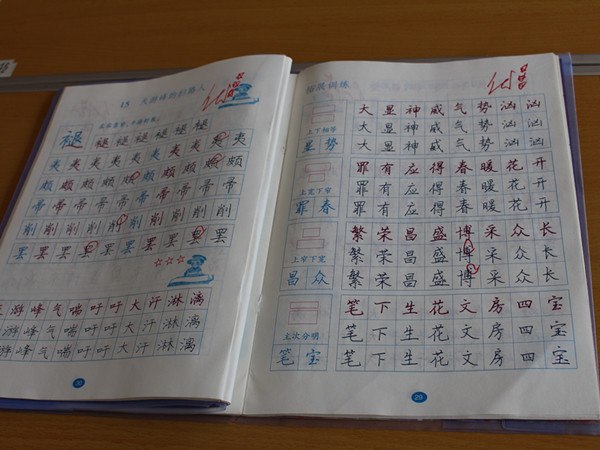 15 天游峰的扫路人
褪 褪 褪 褪 褪 褪 褪
夷 夷 夷 夷 夷 夷 夷 夷 夷
颇 颇 颇 颇 颇 颇 颇 颇 颇
帚 帚 帚 帚 帚 帚 帚 帚 帚
削 削 削 削 削 削 削 削 削
罢 罢 罢 罢 罢 罢 罢 罢 罢
天 游 峰 气 喘 吁 吁 大 汗 淋 漓
游 峰 气 喘 吁 吁 大 汗 淋 漓
拓展训练
大 显 神 威 气 势 汹 汹
大 显 神 威 气 势 汹 汹
上下相等
显 势
大 显 神 威 气 势 汹 汹
罪 有 应 得 春 暖 花 开
罪 有 应 得 春 暖 花 开
上宽下窄
罪 春
罪 有 应 得 春 暖 花 开
繁 荣 昌 盛 博 采 众 长
繁 荣 昌 盛 博 采 众 长
上窄下宽
昌 众
繁 荣 昌 盛 博 采 众 长
笔 下 生 花 文 房 四 宝
笔 下 生 花 文 房 四 宝
主次分明
笔 宝
笔 下 生 花 文 房 四 宝
29